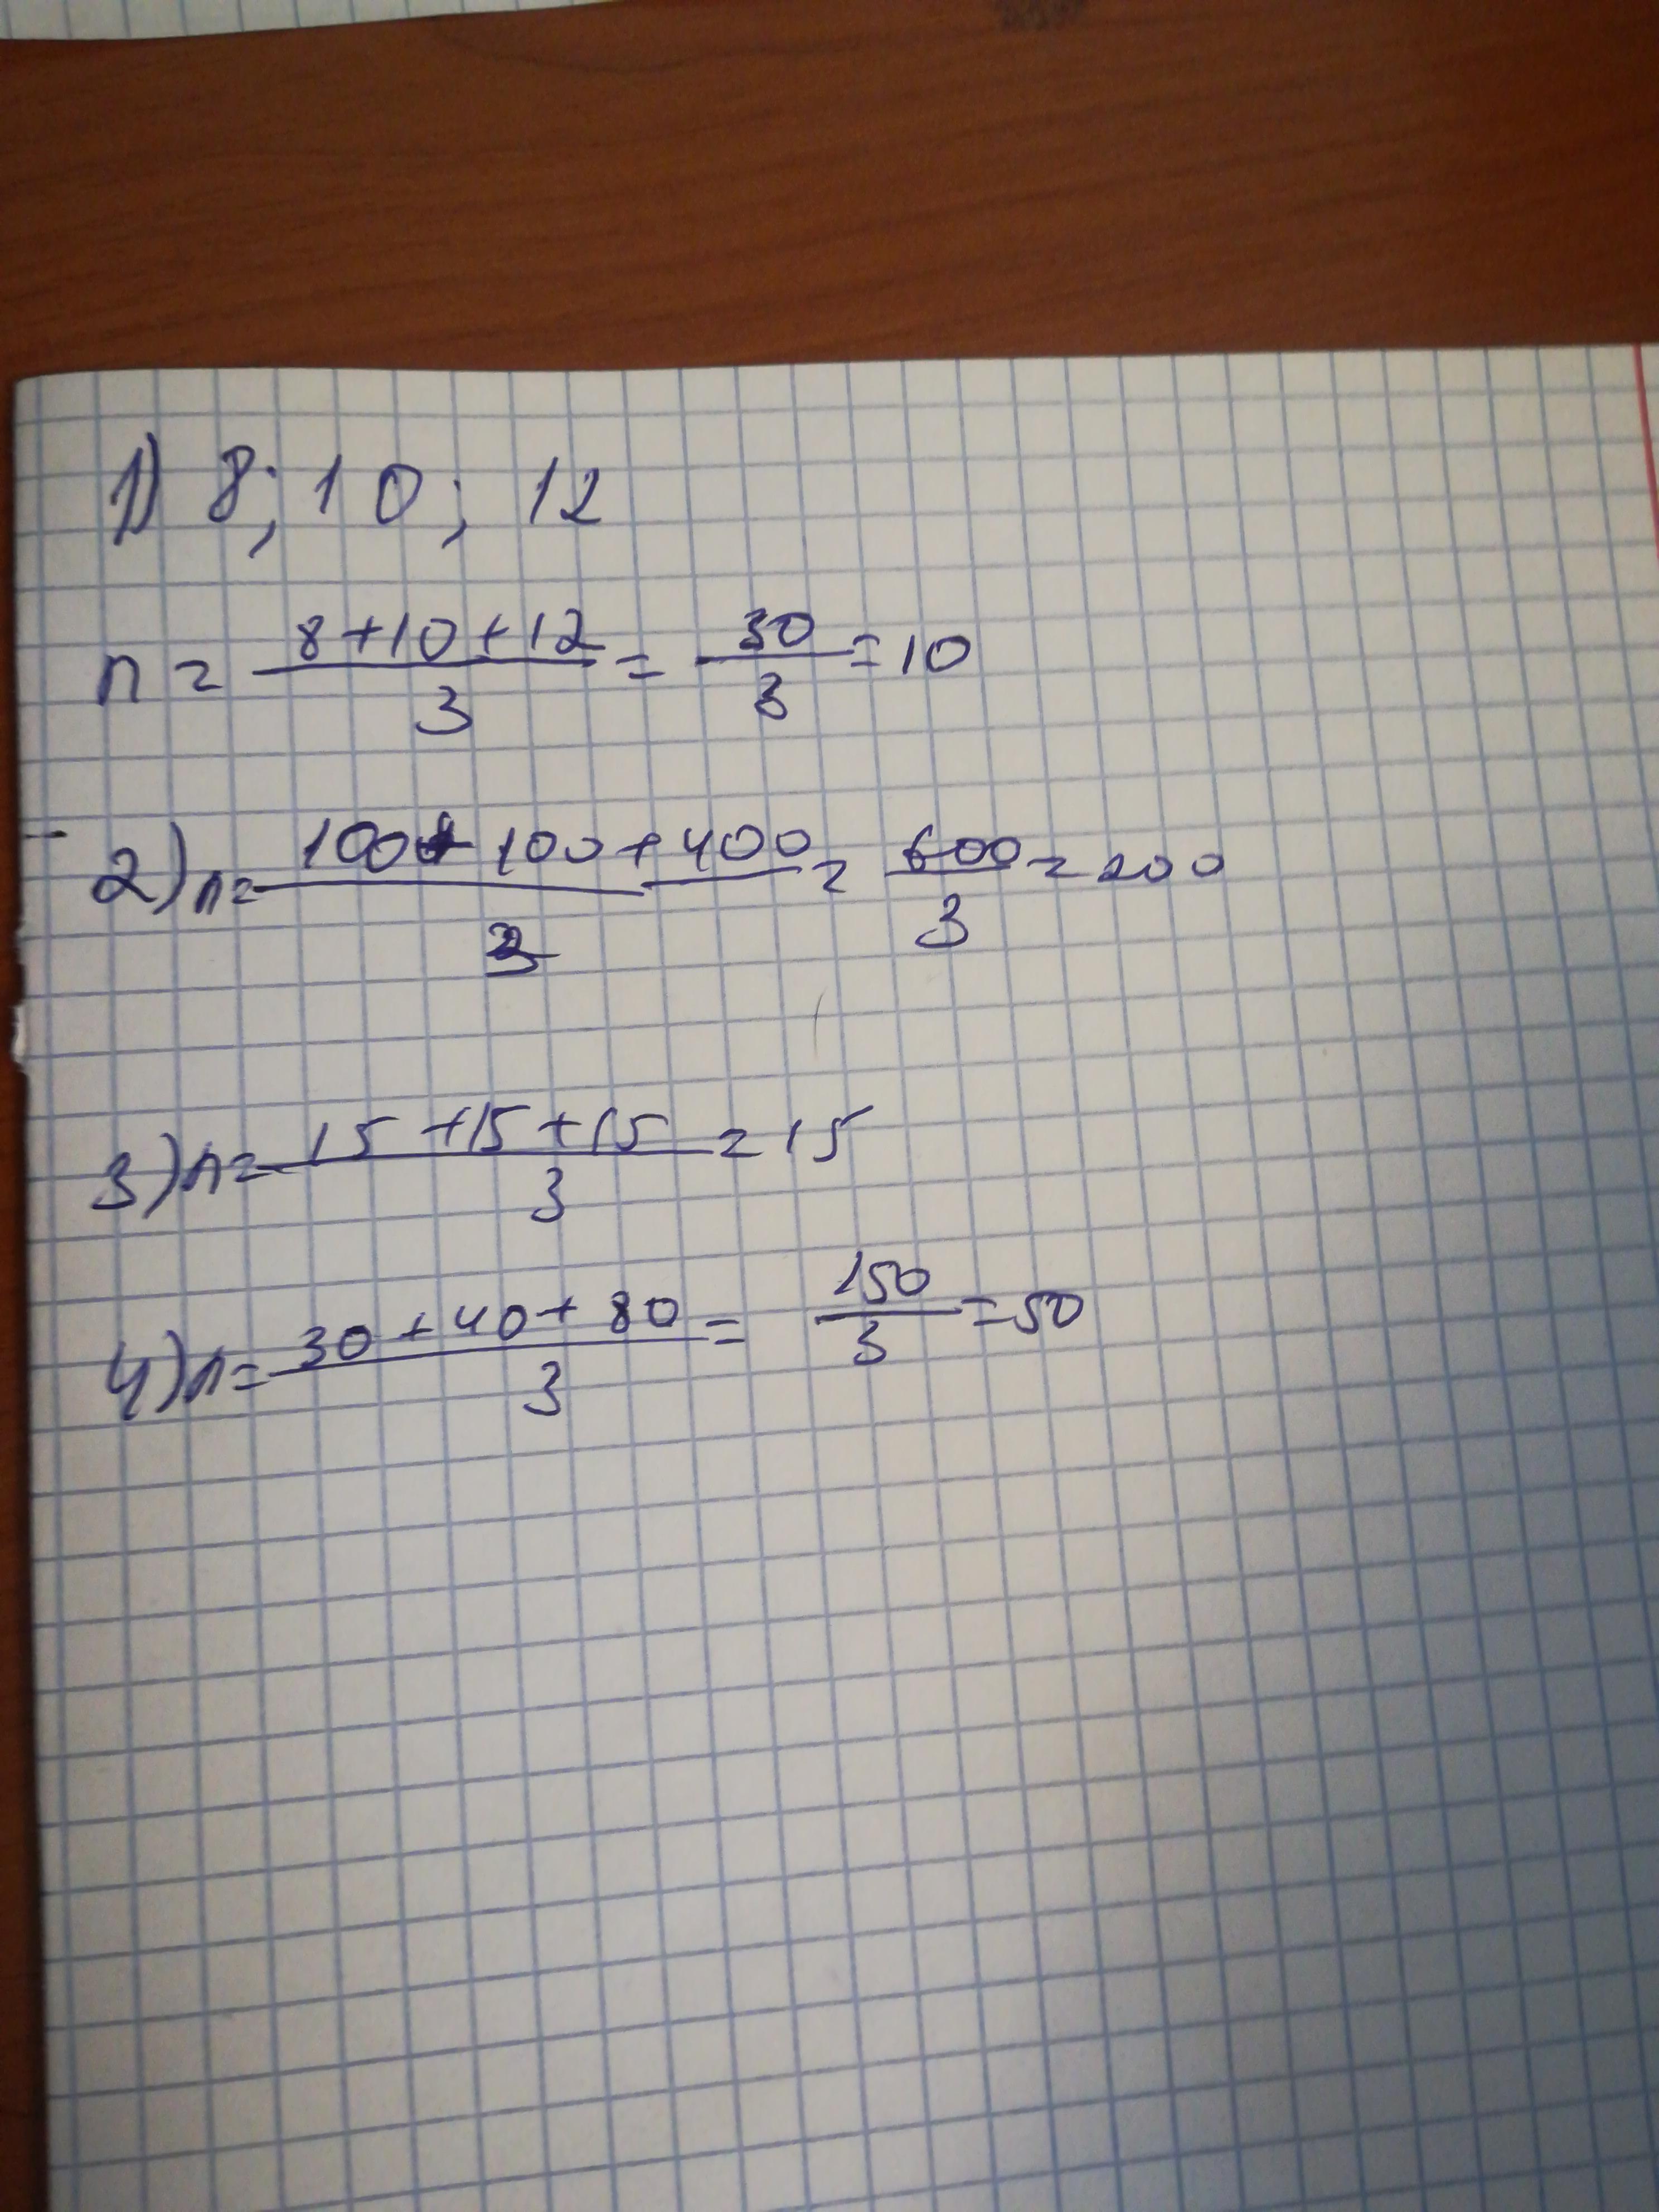 1) 8; 10; 12
n = 8+10+12/3 = 30/3 = 10
2) n = 100+100+400/3 = 600/3 = 200
3) n = 15+15+15/3 = 15
4) n = 30+40+80/3 = 150/3 = 50